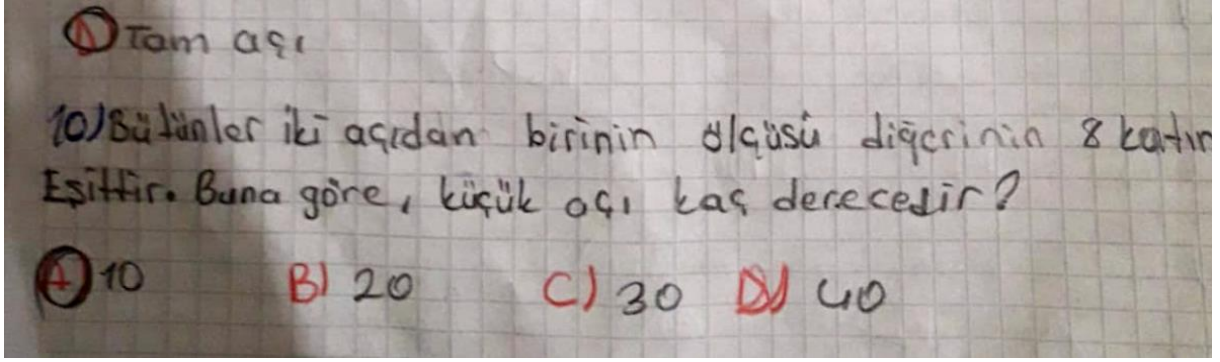 A) Tam açı
10) Bütünler iki açıdan birinin ölçüsü diğerinin 8 katın
Eşittir. Buna göre, küçük açı kaç derecedir?
A) 10 B) 20 C) 30 D) 40